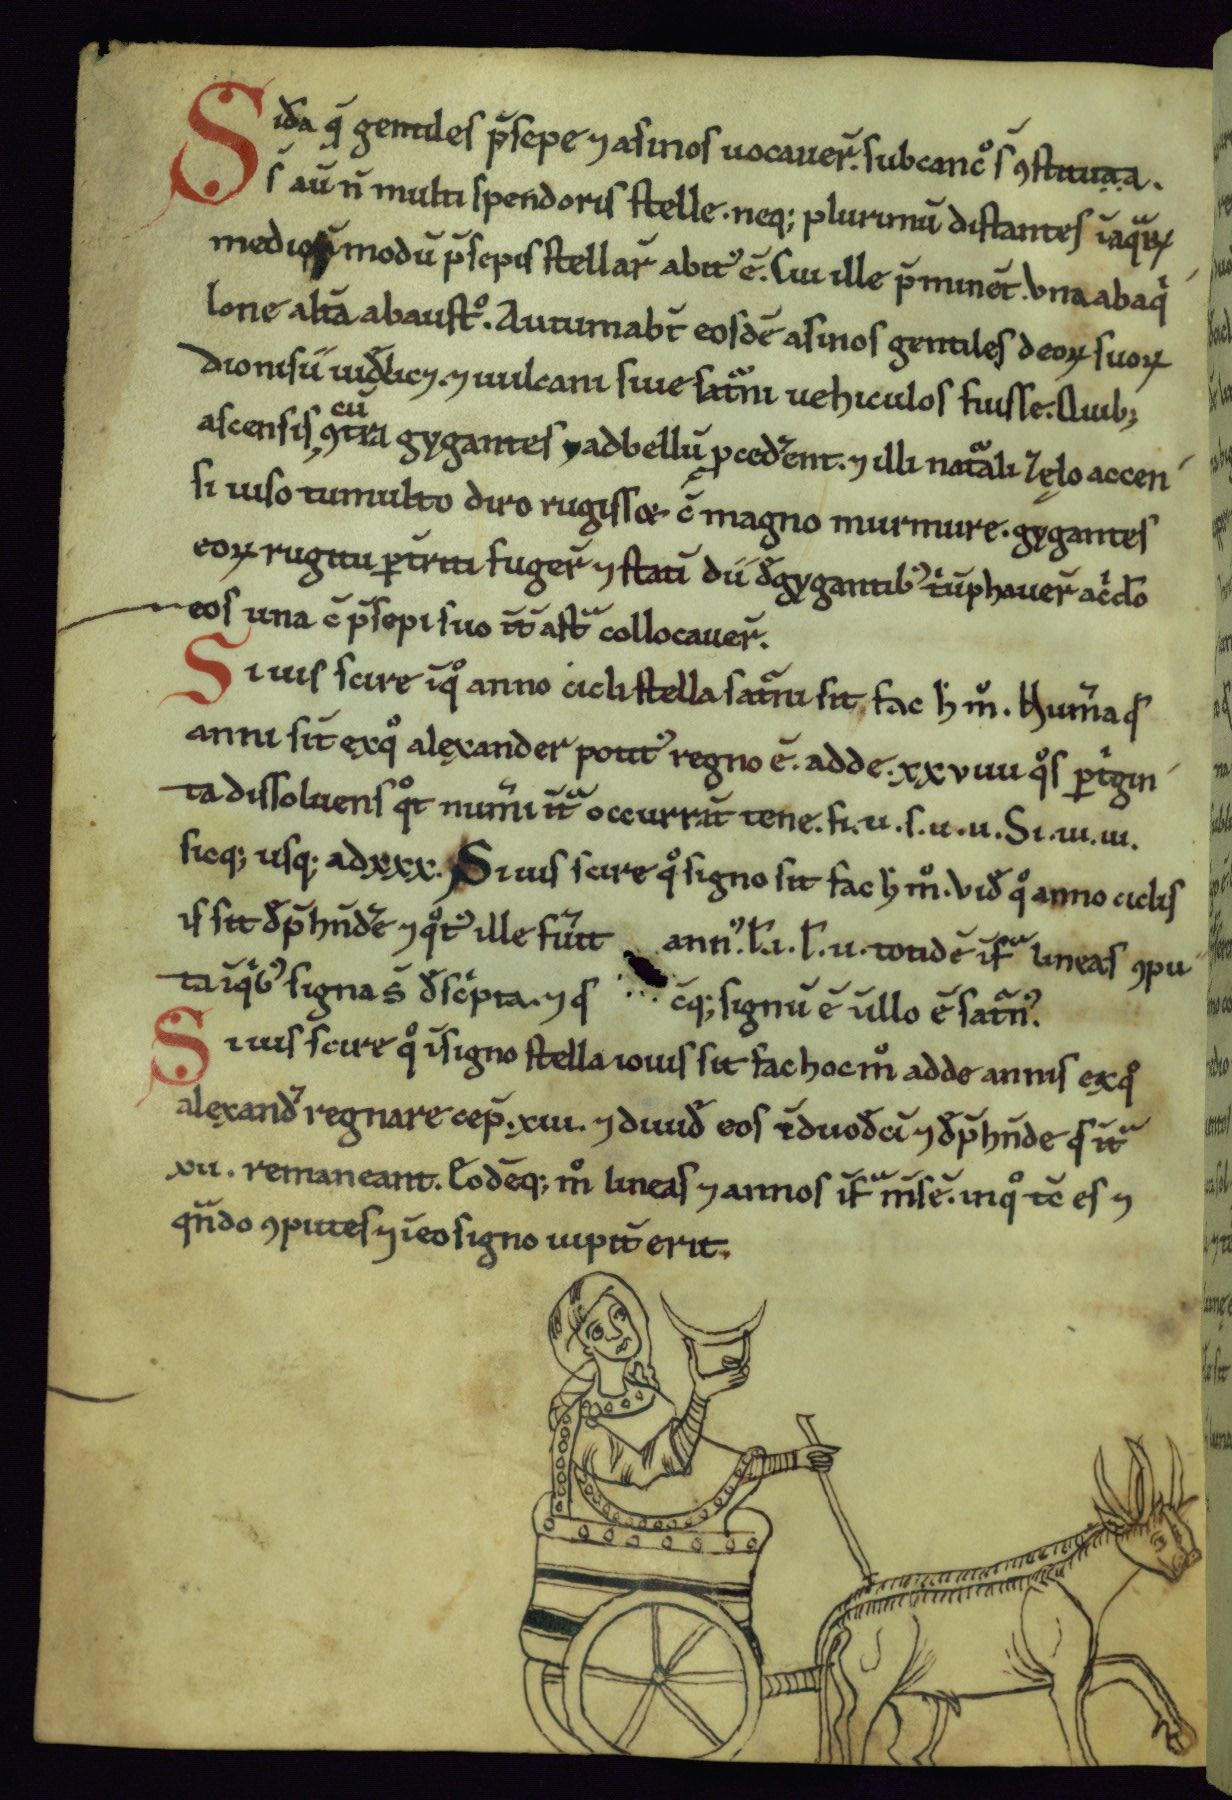 Sid̄a q̄ gentiles p̄sepe ⁊ asinos uocauer̄. sub canc̊ s̄ ꝯstituta.
s̄ au̅ n̅ multi spendoris stelle. neq; plurimu̅ distantes
modu̅ p̄sepis stellar̄ abit᾽ ē. Cui ille p̄minet̄. Vna ab aqͥ
lone alt̄a ab austͦ. Autumabt̄ eosdē asinos gentiles deoꝝ suoꝝ
dionisii ⁊ uulcani siue satᷓni uehiculos fuisse. Quib;
ascensis, cū ꝯtra gygantes ad bellu̅ ꝓced᾽ent. ⁊ illi natᷓali zęlo accen
si uiso tumulto diro rugissͣ c̄ magno murmure. gygantes
eoꝝ rugitu ꝑt̄riti fuger̄ ⁊ stati̅ dii đ gygantib᾽ tͥu̅phauer̄
eos una c̄ p̄sepi suo astᷓ collocauer̄.
Si uis scire i̅ qͦ anno cicli stella satᷓni sit fac h̄ mͦ. Num̄a qͥ
anni sit̄ ex qͦ alexander potit᾽ regno ē. adde. xxviiii qͦs ꝑ tͥgin
ta dissoluens qͦt num̄i it̄ᷓ occurrāt tene. si. u. s. u. u. Si. iii. iii.
sicq; usq; ad xxx. Si uis scire qͦ signo sit fac h̄ mͦ. Vid̄ qͦ anno ciclis
is sit đp̄hn̄de ⁊ qͦt᾽ ille fu᾽it ann᾽. totidē if̄ᷓ lineas ꝯpu
ta i̅ qͥb᾽ signa s̄ đscͥpta. ⁊ q c̄q; signu̅ ē ī illo ē satᷓn᾽.
Si uis scire qͦ i̅ signo stella iouis sit fac hoc mͦ adde annis ex qͦ
alexand᾽ regnare cep̄. xiii. ⁊ diuid̄ eos ī duođci̅ ⁊ đp̄hn̄de q it̄ᷓ
xii. remaneant. Eodēq; mͦ lineas ⁊ annos if̄ᷓ in qͦ tc̄ es ⁊
qn̄do ꝯputes ⁊ i̅ eo signo iupit̄ erit.